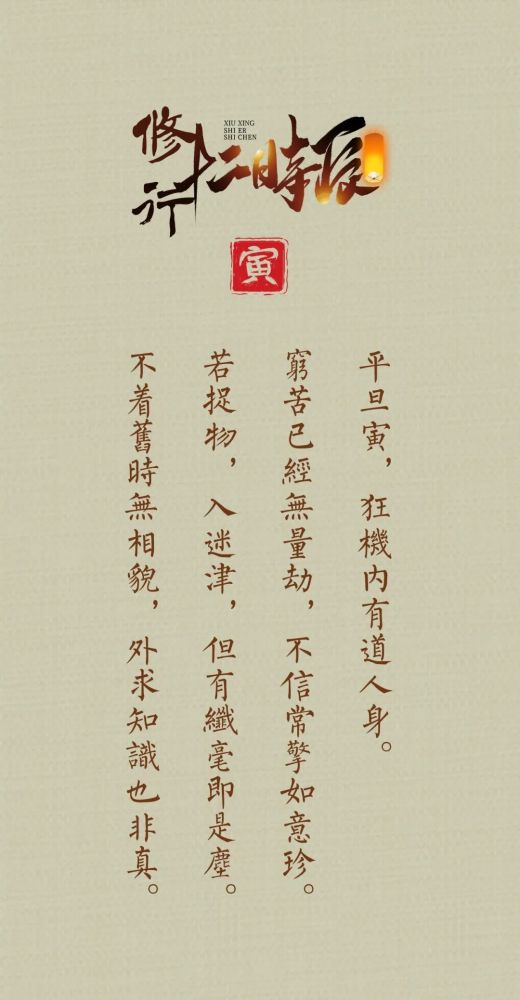 修行十二時辰
XIU XING
SHI ER
SHI CHEN
寅
平旦寅，狂機内有道人身。
窮苦已經無量劫，不信常擎如意珍。
若捉物，入迷津，但有纖毫即是塵。
不着舊時無相貌，外求知識也非真。